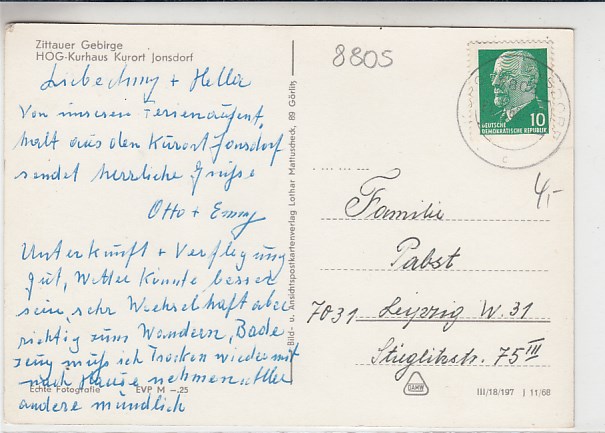 Zittauer Gebirge
HOG-Kurhaus Kurort Jonsdorf
Liebe Jenny + Hella
Von unseren Ferienaufent
halt aus den Kurort Jonsdorf
sendet herzliche Grüße
Otto + Emmy
Unterkunft + Verflegung
gut, Wetter könnte besser
sein, sehr Wechselhaft aber
richtig zum Wandern, Bade
zeug muß ich Trocken wieder mit
nach Hause nehmen. Alles
andere mündlich
Echte Fotografie EVP M -.25
Bild- u. Ansichtspostkartenverlag Lothar Mattuscheck, 89 Görlitz
8805
10
DEUTSCHE
DEMOKRATISCHE REPUBLIK
4,-
Familie
Pabst
7031 Leipzig W. 31
Stieglitzstr. 75 III
III/18/197 J 11/68